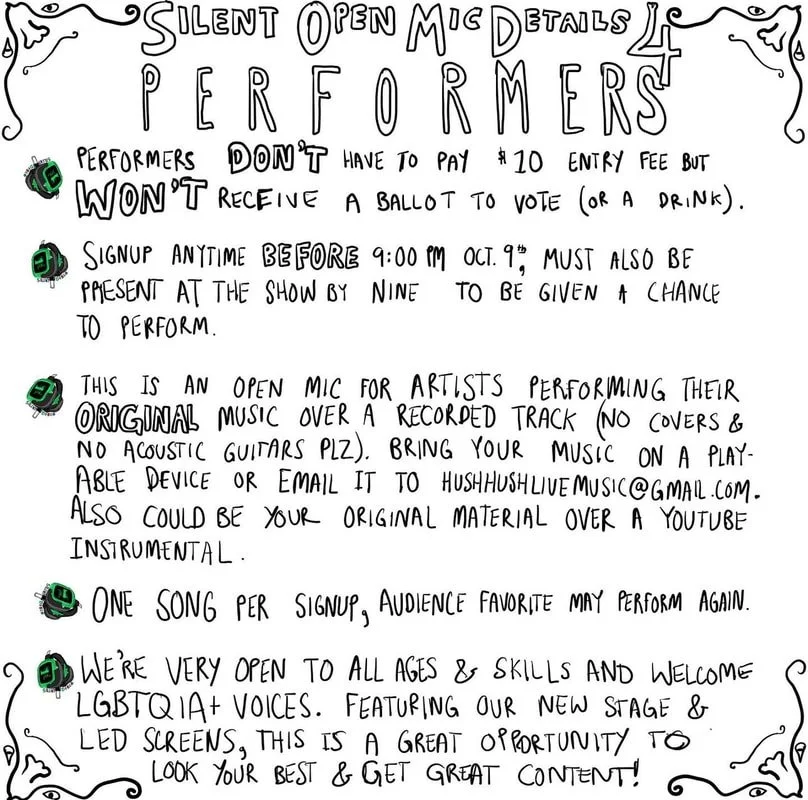 SILENT OPEN MIC DETAILS 4
PERFORMERS
PERFORMERS DON'T HAVE TO PAY $10 ENTRY FEE BUT
WON'T RECEIVE A BALLOT TO VOTE (OR A DRINK).
SIGNUP ANYTIME BEFORE 9:00 PM OCT. 9th, MUST ALSO BE
PRESENT AT THE SHOW BY NINE TO BE GIVEN A CHANCE
TO PERFORM.
THIS IS AN OPEN MIC FOR ARTISTS PERFORMING THEIR
ORIGINAL MUSIC OVER A RECORDED TRACK (NO COVERS &
NO ACOUSTIC GUITARS PLZ). BRING YOUR MUSIC ON A PLAY-
ABLE DEVICE OR EMAIL IT TO HUSHHUSHLIVEMUSIC@GMAIL.COM.
ALSO COULD BE YOUR ORIGINAL MATERIAL OVER A YOUTUBE
INSTRUMENTAL.
ONE SONG PER SIGNUP, AUDIENCE FAVORITE MAY PERFORM AGAIN.
WE'RE VERY OPEN TO ALL AGES & SKILLS AND WELCOME
LGBTQIA+ VOICES. FEATURING OUR NEW STAGE &
LED SCREENS, THIS IS A GREAT OPPORTUNITY TO
LOOK YOUR BEST & GET GREAT CONTENT!